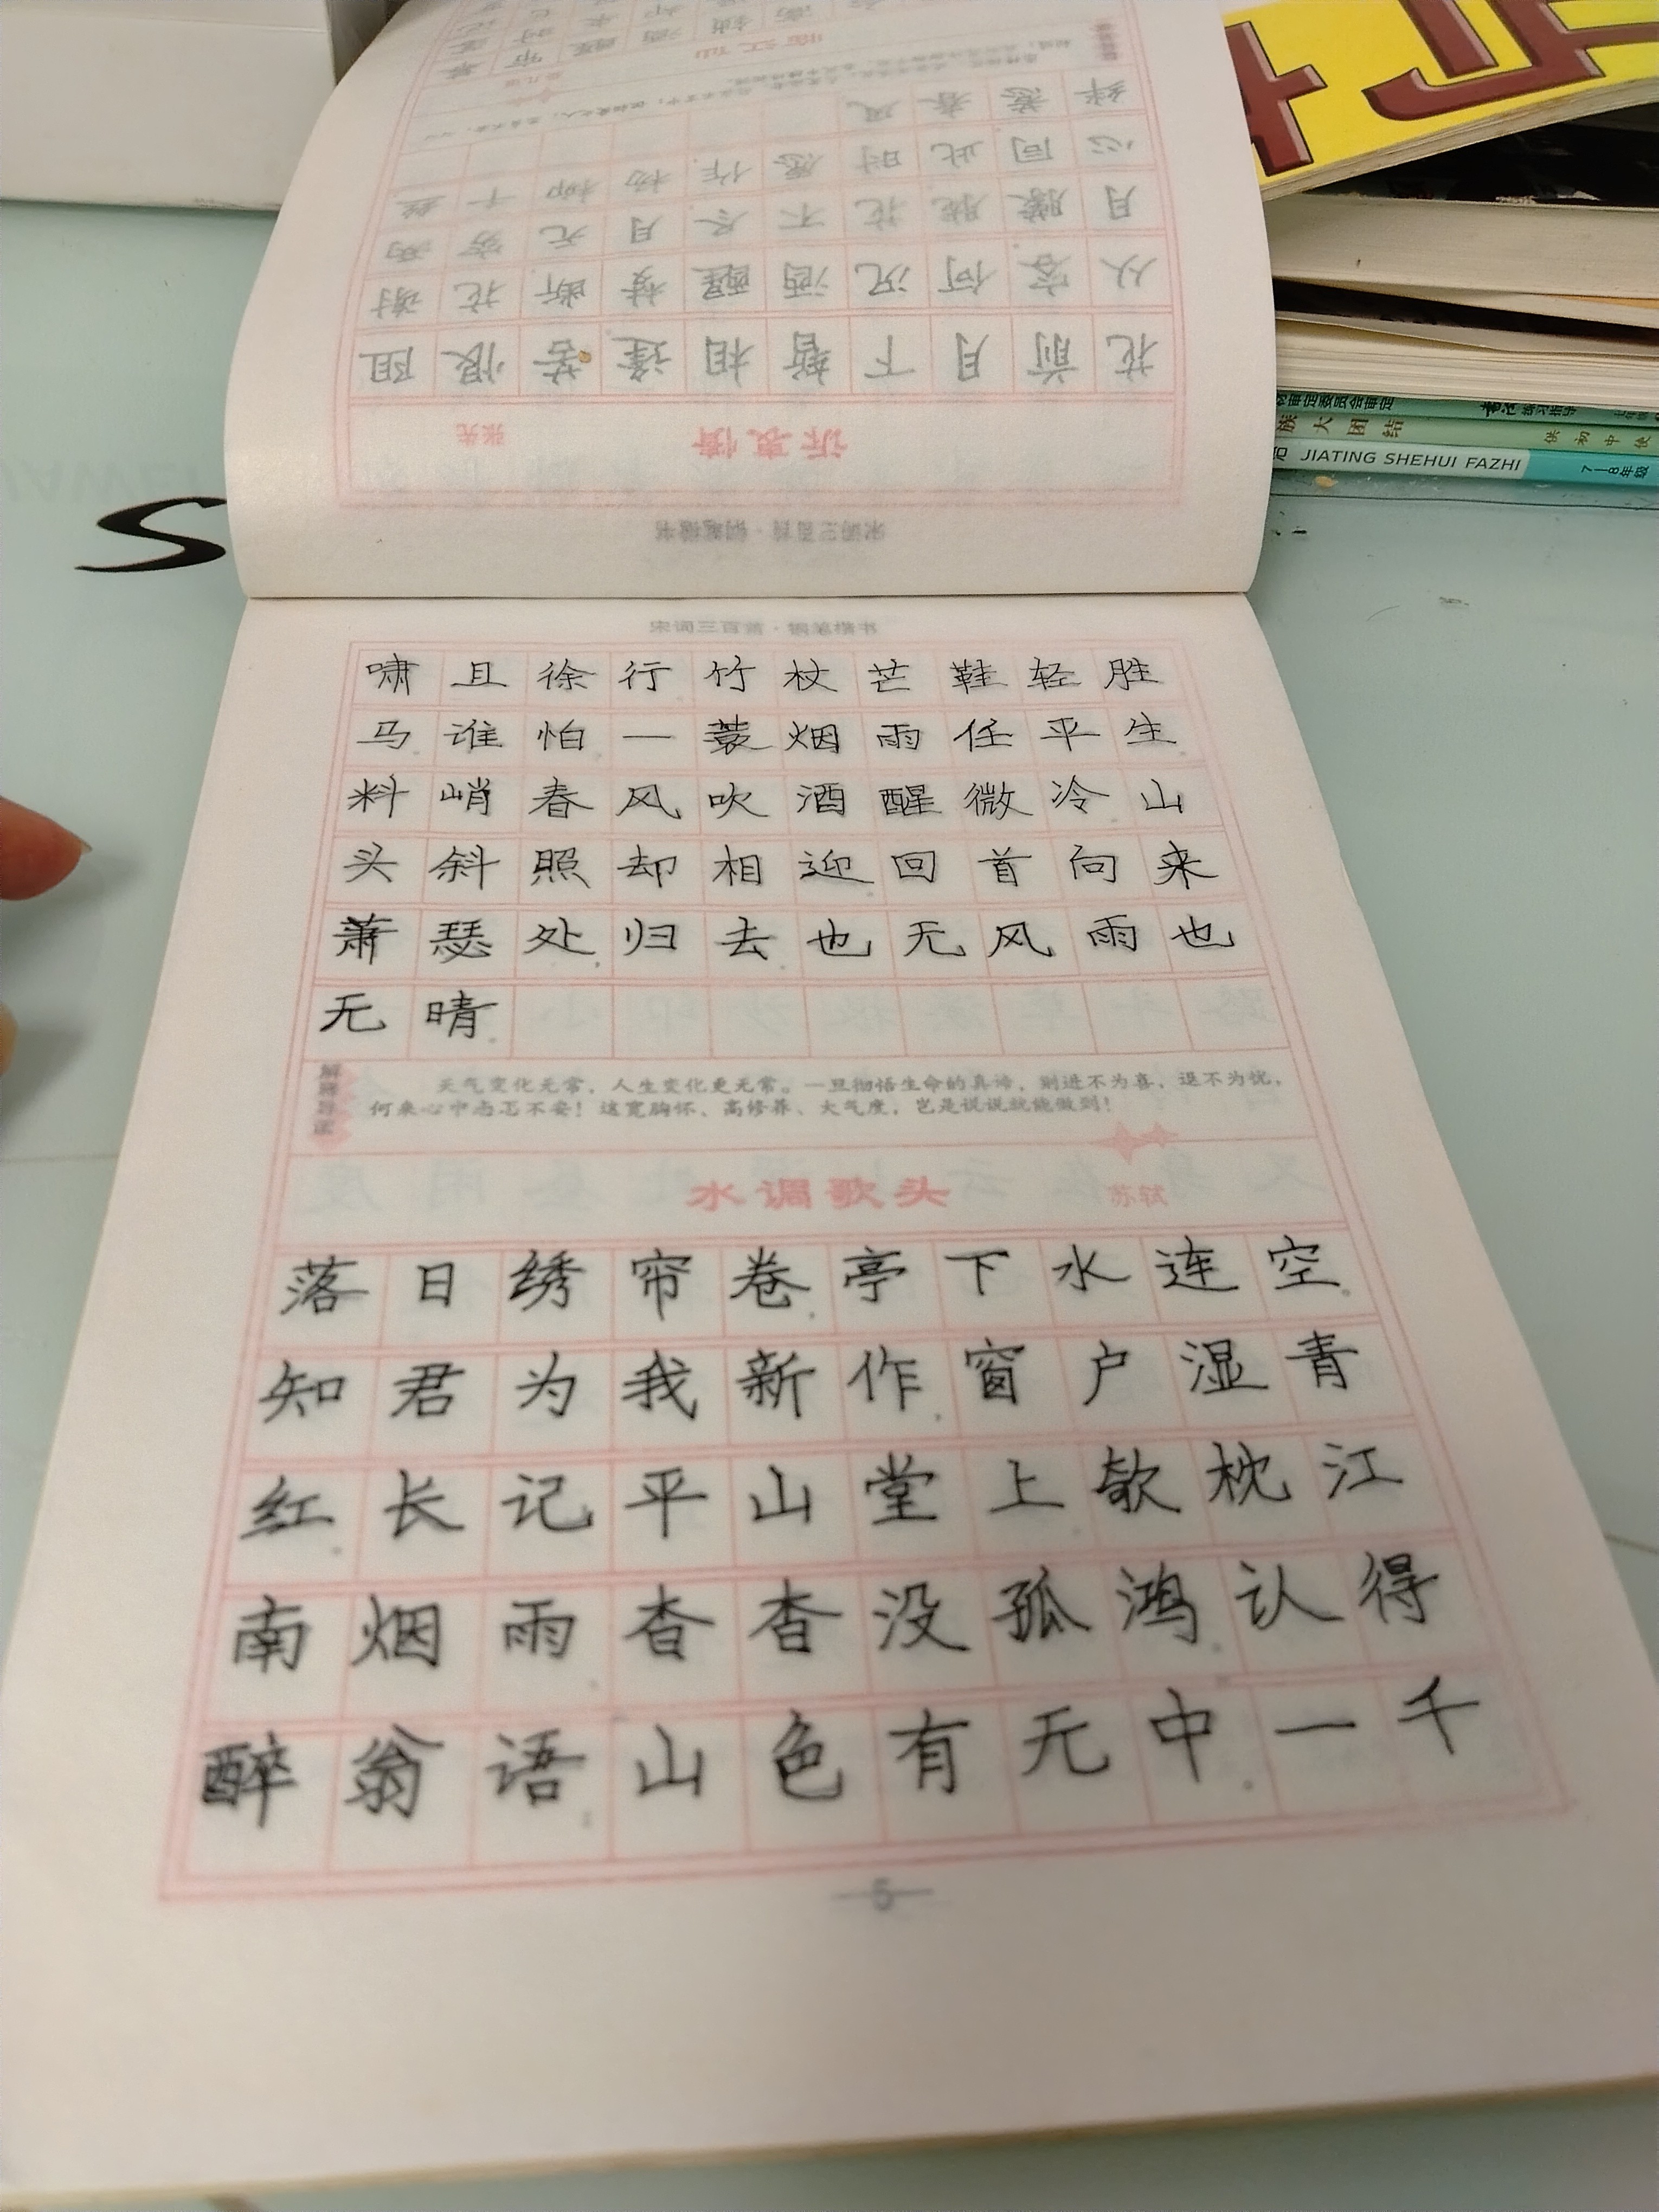 宋词三百首·钢笔楷书
啸且徐行竹杖芒鞋轻胜
马谁怕一蓑烟雨任平生
料峭春风吹酒醒微冷山
头斜照却相迎回首向来
萧瑟处归去也无风雨也
无晴
天气变化无常，人生变化更无常。一旦彻悟生命的真谛，则进不为喜，退不为忧，
何来心中忐忑不安！这宽胸怀、高修养、大气度，岂是说说就能做到！
水调歌头 苏轼
落日绣帘卷亭下水连空
知君为我新作窗户湿青
红长记平山堂上欹枕江
南烟雨杳杳没孤鸿认得
醉翁语山色有无中一千
5
宋词三百首·钢笔楷书
诉衷情 张先
花前月下暂相逢苦恨阻
从容何况酒醒梦断花谢
月朦胧花不尽月无穷两
心同此时愿作杨柳千丝
绊惹春风
临江仙
族大团结
JIATING SHEHUI FAZHI
7—8年级
S